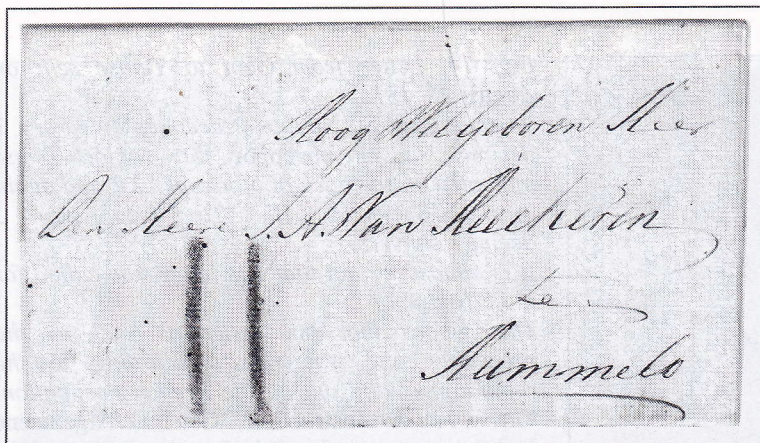 Hoog Welgeboren Heer
Den Heere J. A. Van Heeckeren
te
Hummelo